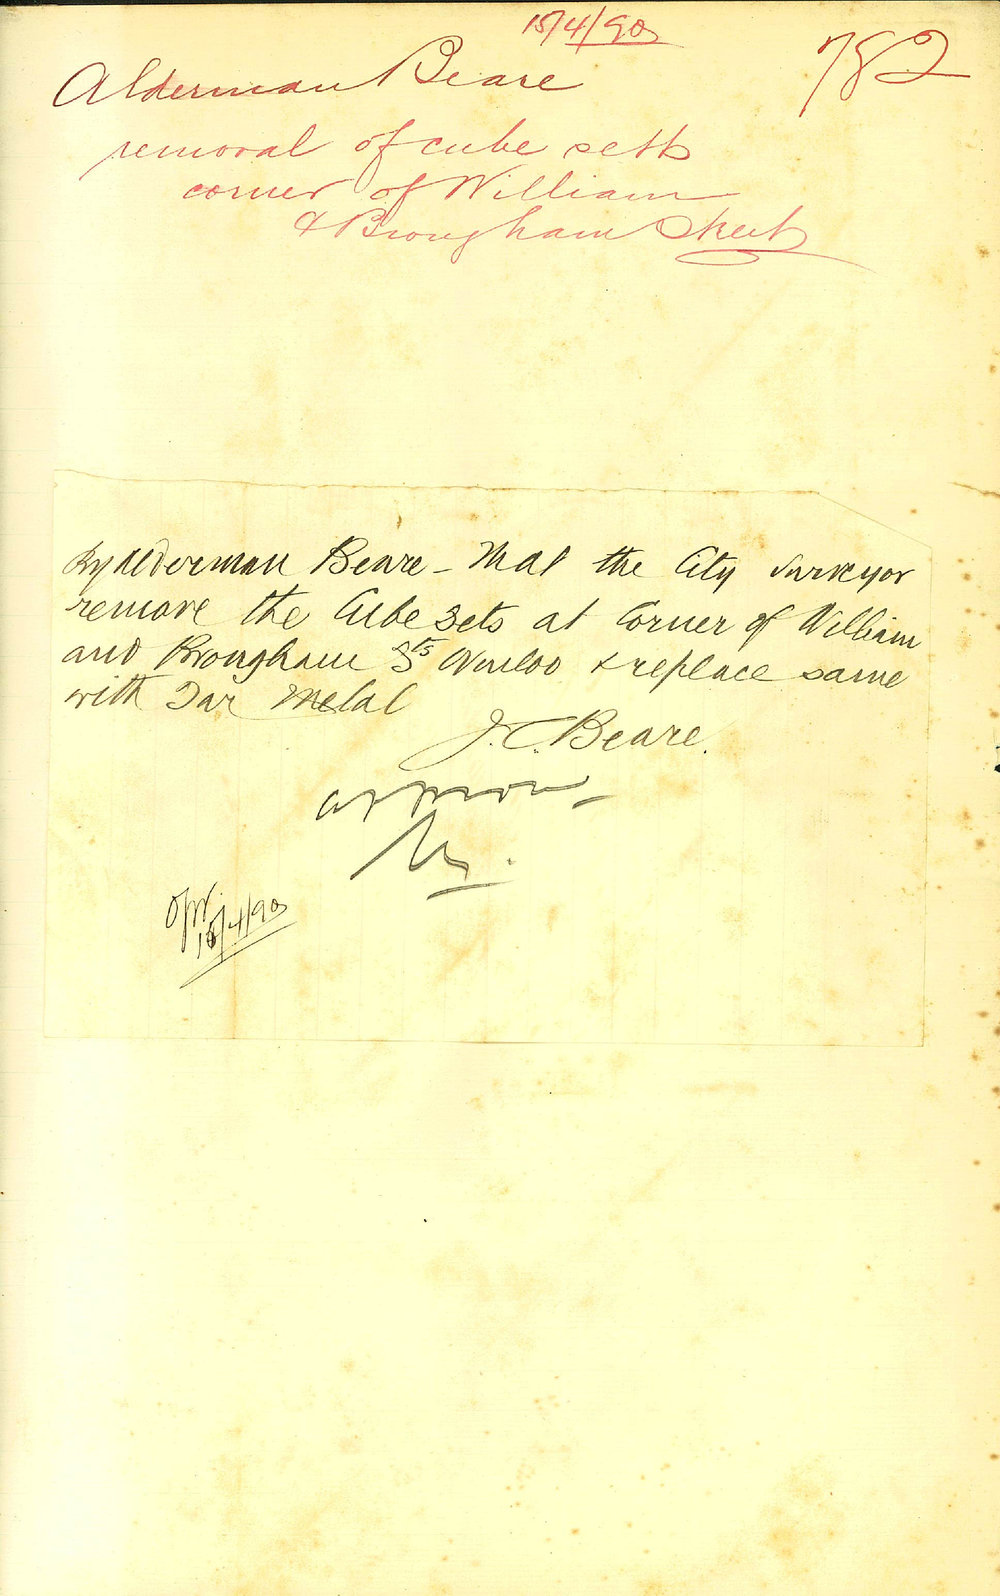 15/4/90
782
Alderman Beare
removal of cube setts
corner of William
& Brougham Street
By Alderman Beare - That the City Surveyor
remove the Cube Sets at Corner of William
and Brougham Sts W'mloo & replace same
with Tar Metal
J.C. Beare.
15/4/90